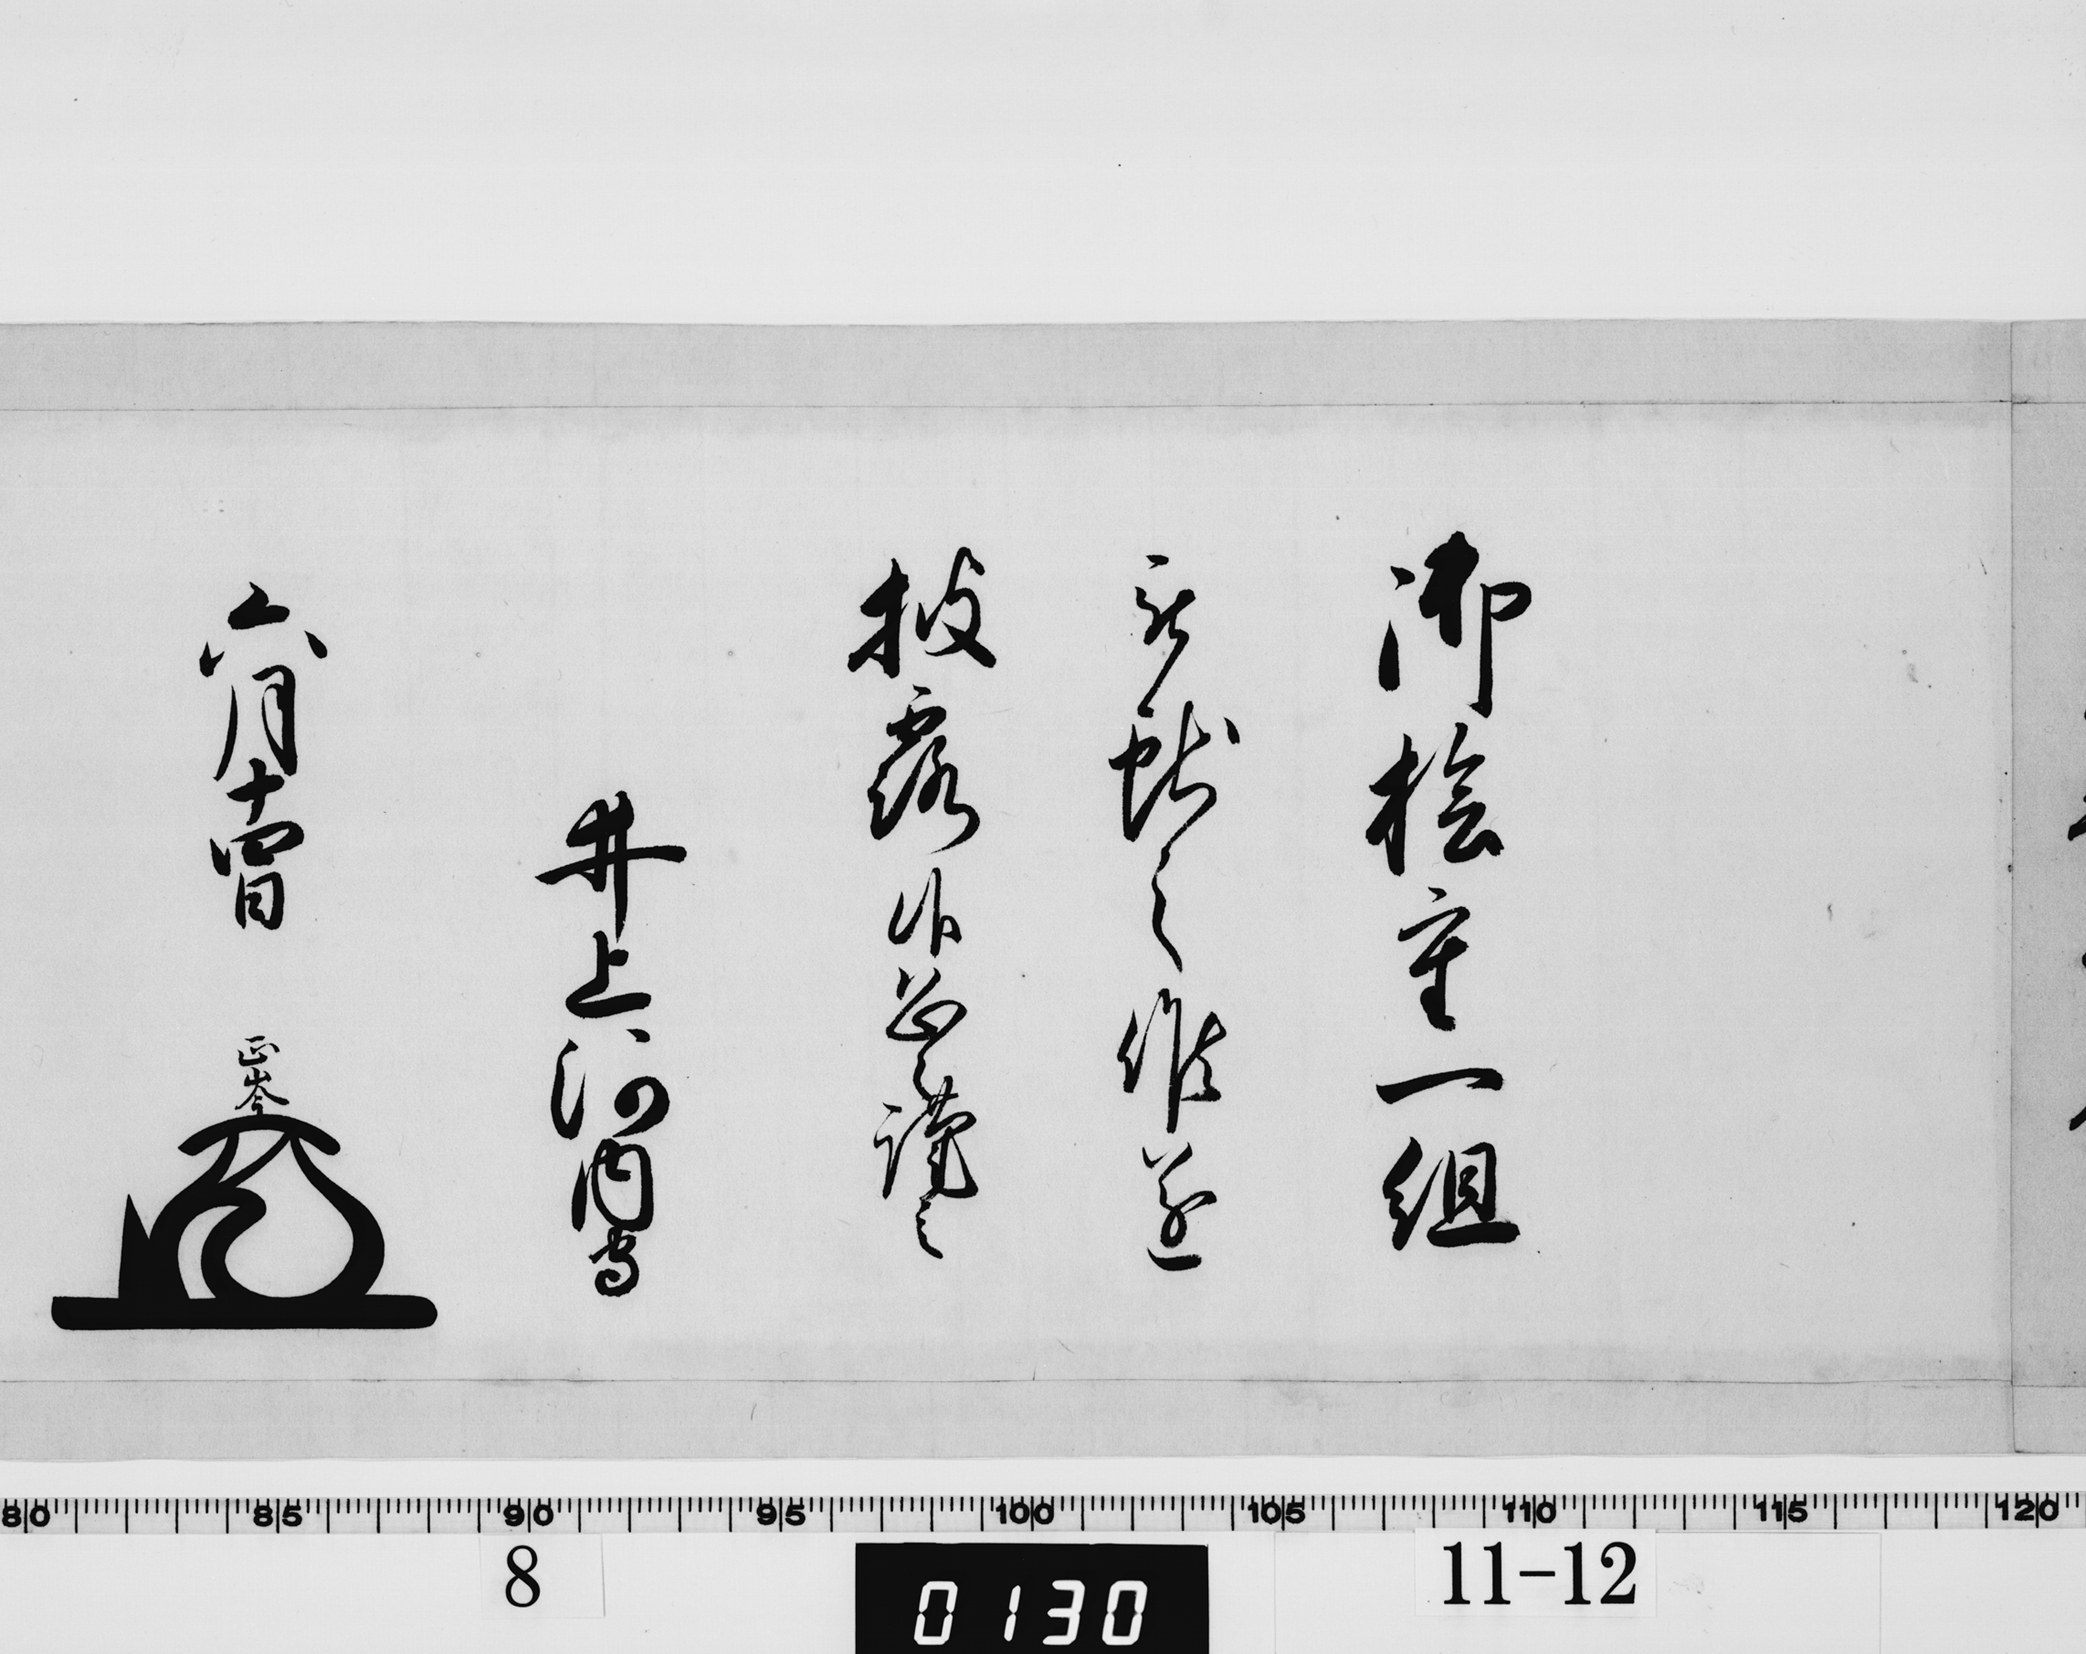 御桧重一組
被献之候遂
披露候処恐々謹言
井上河内守
六月十四日
正岑
80 85 90 95 100 105 110 115 120
8
0130
11-12